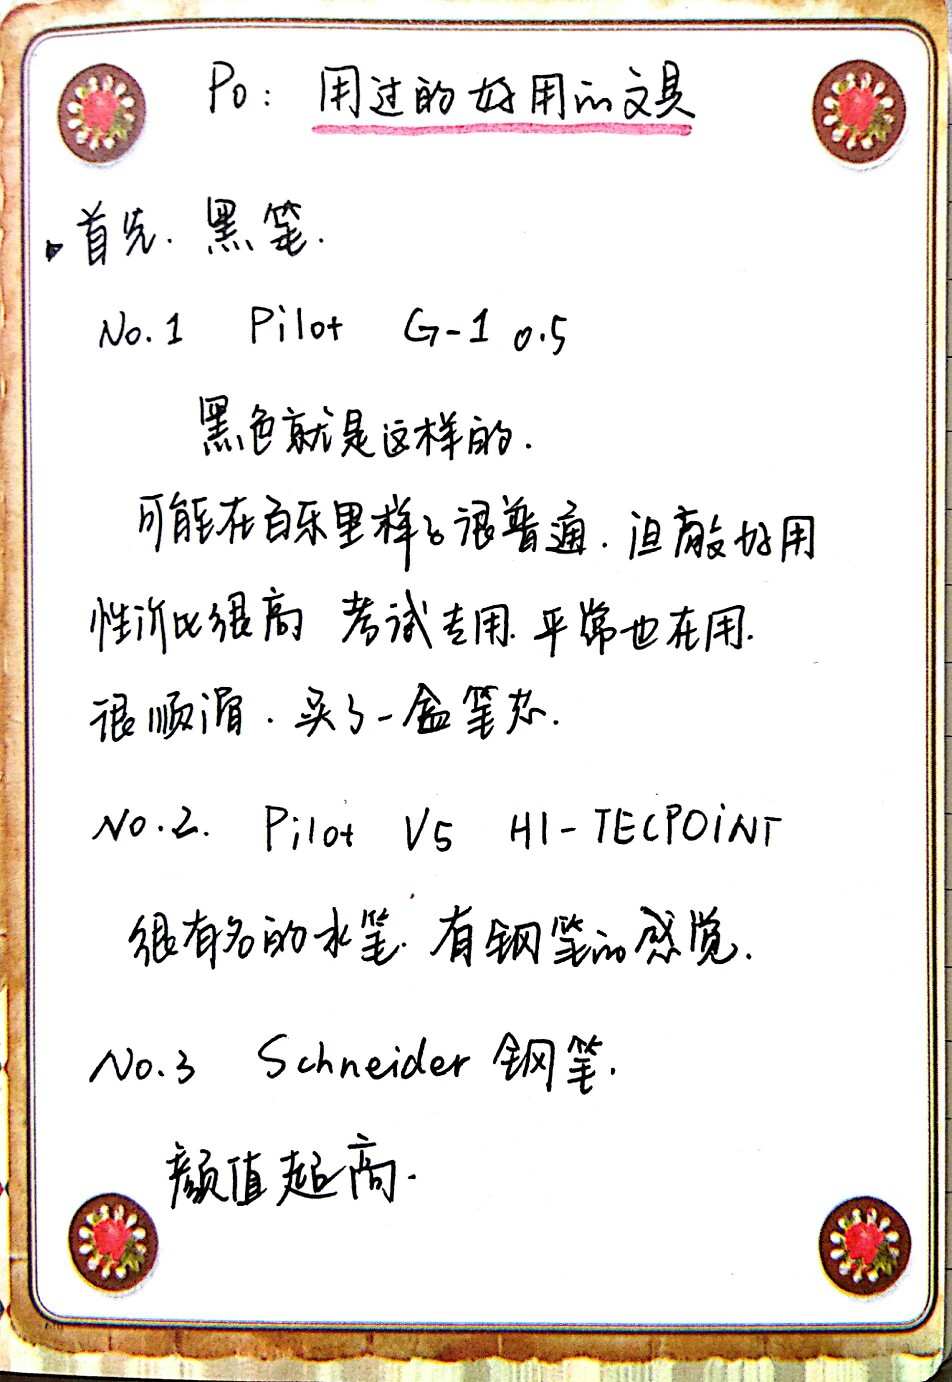 Po: 用过的好用的文具
首先. 黑笔.
No.1 Pilot G-1 0.5
黑色就是这样的.
可能在百乐里样子很普通. 但敲好用
性价比很高 考试专用. 平常也在用.
很顺滑. 买了一盒笔芯.
No.2. Pilot V5 HI-TECPOINT
很有名的水笔. 有钢笔的感觉.
No.3 Schneider 钢笔.
颜值超高.